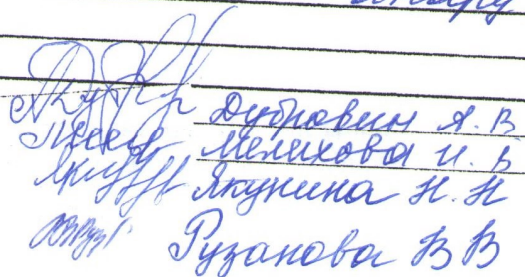 Дубровин А.В
Мелихова И.В
Якунина Н.Н
Рузанова В В